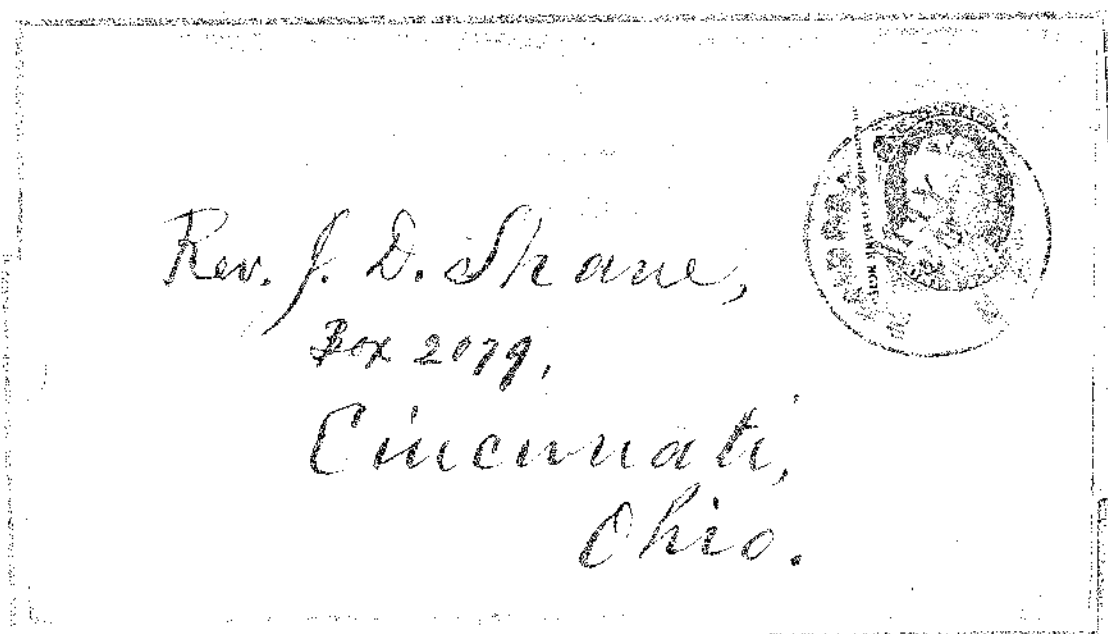 Rev. J. D. Shane,
Box 2079,
Cincinnati,
Ohio.